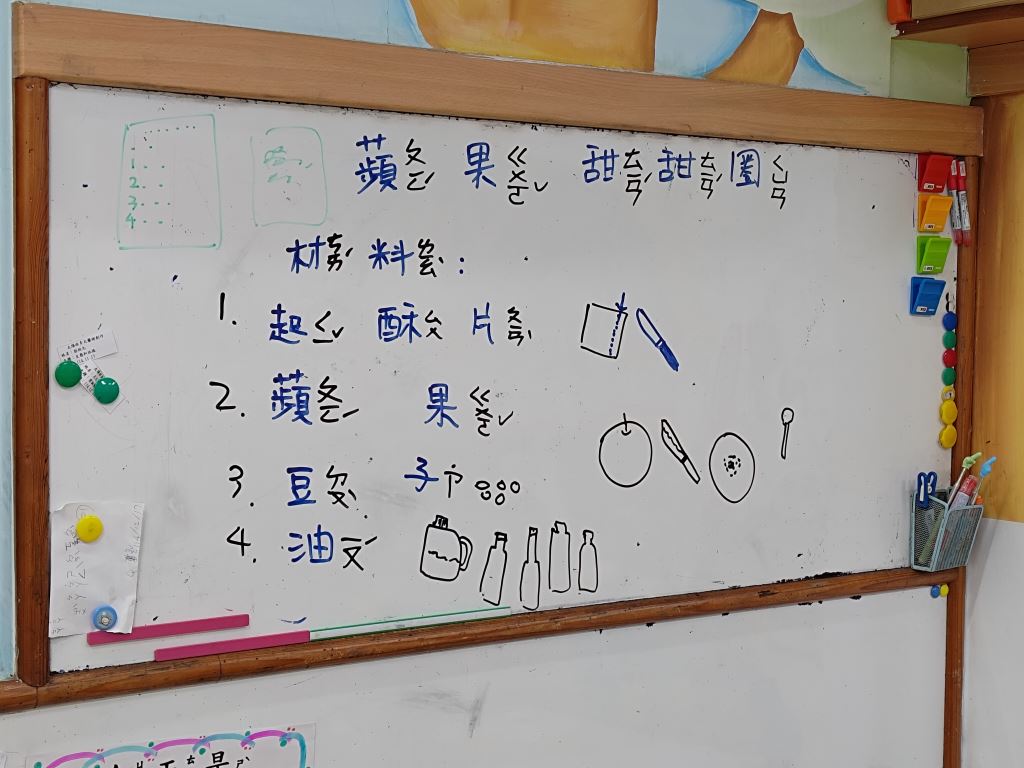 蘋ㄆㄧㄥˊ 果ㄍㄨㄛˇ 甜ㄊㄧㄢˊ甜ㄊㄧㄢˊ圈ㄑㄩㄢ
材ㄘㄞˊ 料ㄌㄧㄠˋ:
1. 起ㄑㄧˇ 酥ㄙㄨ 片ㄆㄧㄢˋ
2. 蘋ㄆㄧㄥˊ 果ㄍㄨㄛˇ
3. 豆ㄉㄡˋ 子ㄗ˙
4. 油ㄧㄡˊ
1.
2.
3.
4.
是ㄕˋ